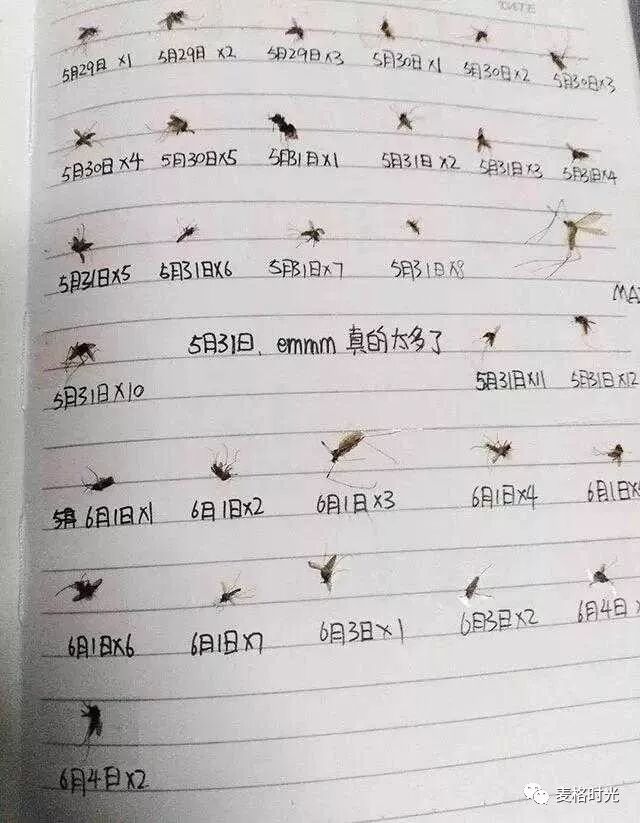 DATE
5月29日 x1 5月29日 x2 5月29日 x3 5月30日x1 5月30日x2 5月30日x3
5月30日x4 5月30日x5 5月31日x1 5月31日x2 5月31日x3 5月31日x4
5月31日x5 5月31日x6 5月31日x7 5月31日x8
5月31日x10 5月31日, emmm 真的太多了 5月31日x11 5月31日x12
6月1日x1 6月1日x2 6月1日x3 6月1日x4 6月1日x
6月1日x6 6月1日x7 6月3日x1 6月3日x2 6月4日x
6月4日x2
麦格时光